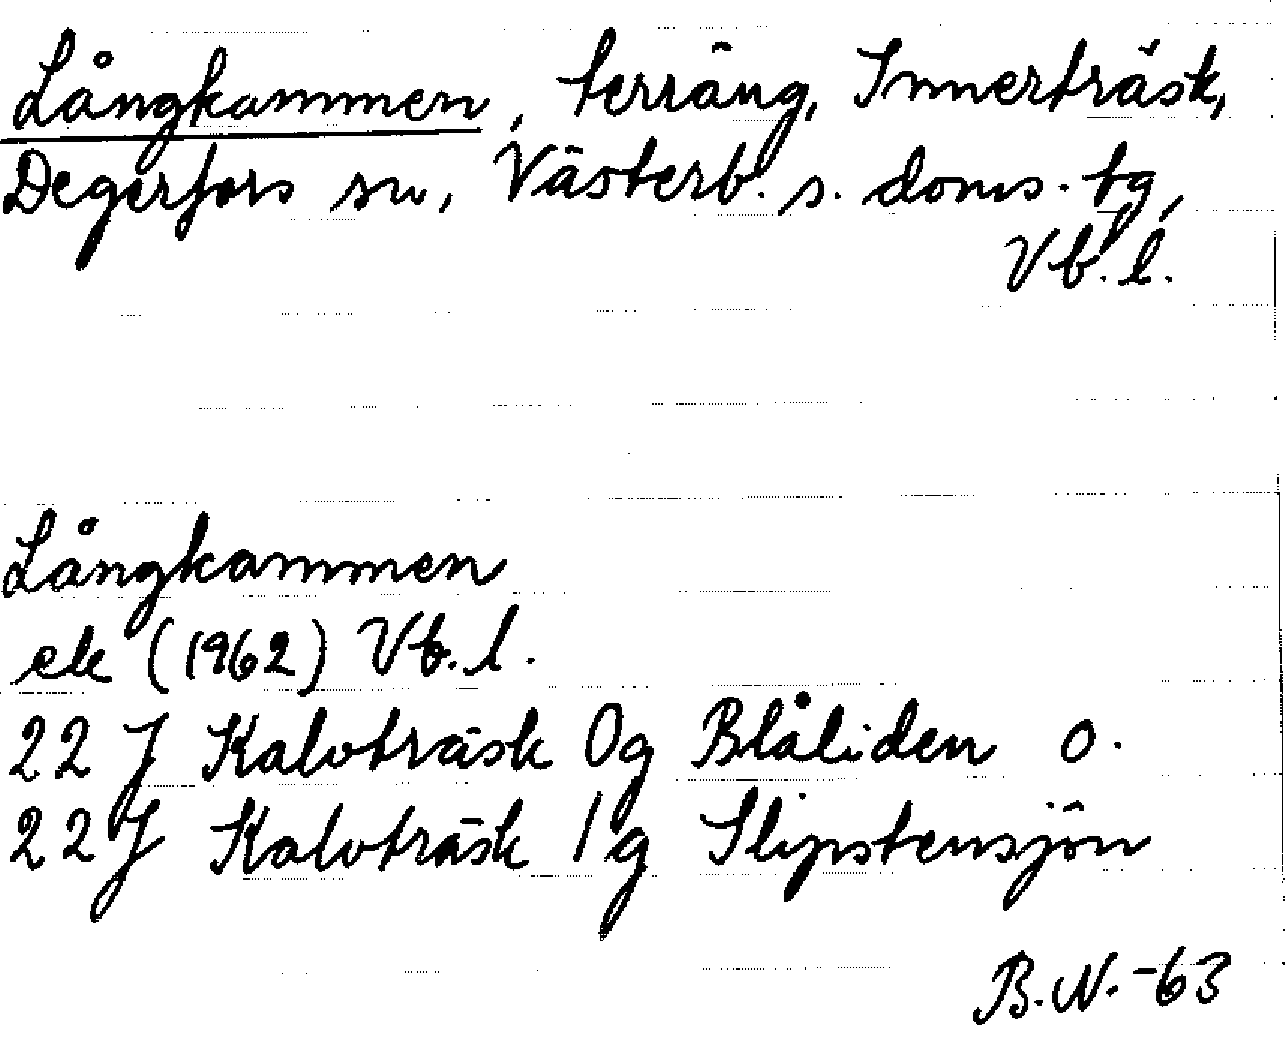 Långkammen, terräng, Innerträsk,
Degerfors sn, Västerb. s. doms. tg,
Vb. l.
Långkammen
ek (1962) Vb. l.
22 J Kalvträsk 0g Blåliden o.
22 J Kalvträsk 1g Slipstensjön
B.N. -63